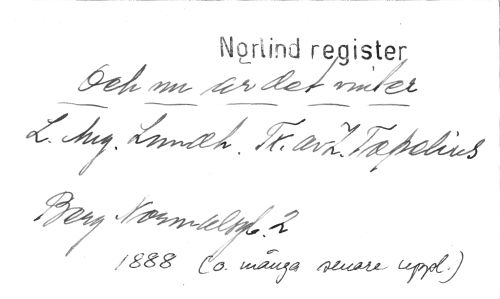 Norlind register
Och nu är det vinter
L. Aug. Lundh. Tx. av Z. Topelius
Berg Normalpl. 2
1888 (o. många senare uppl.)